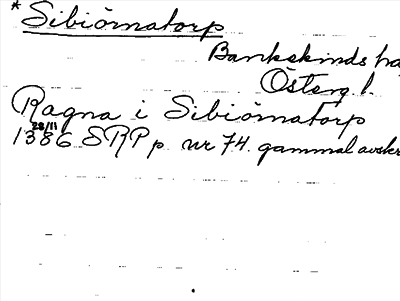 * Sibiörnatorp
Bankekinds hä
Österg. l.
Ragna i Sibiörnatorp
28/11
1386 SRP p. nr 74. gammal avskr